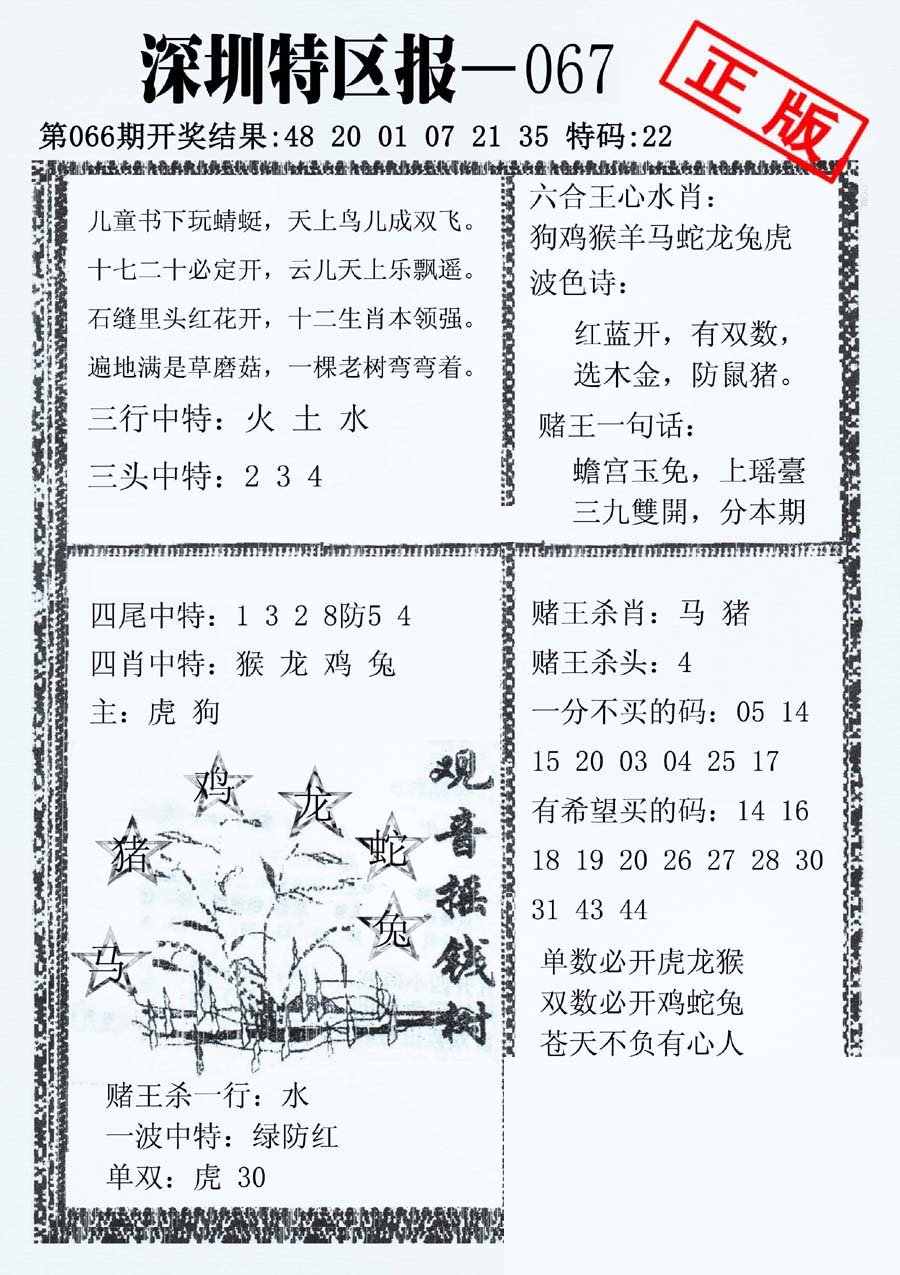 深圳特区报—067
正版
第066期开奖结果:48 20 01 07 21 35 特码:22
儿童书下玩蜻蜓，天上鸟儿成双飞。
十七二十必定开，云儿天上乐飘遥。
石缝里头红花开，十二生肖本领强。
遍地满是草磨菇，一棵老树弯弯着。
三行中特：火 土 水
三头中特：2 3 4
六合王心水肖：
狗鸡猴羊马蛇龙兔虎
波色诗：
红蓝开，有双数，
选木金，防鼠猪。
赌王一句话：
蟾宫玉免，上瑶臺
三九雙開，分本期
四尾中特：1 3 2 8防5 4
四肖中特：猴 龙 鸡 兔
主：虎 狗
鸡
龙
猪
蛇
兔
马
观音摇钱树
赌王杀一行：水
一波中特：绿防红
单双：虎 30
赌王杀肖：马 猪
赌王杀头：4
一分不买的码：05 14
15 20 03 04 25 17
有希望买的码：14 16
18 19 20 26 27 28 30
31 43 44
单数必开虎龙猴
双数必开鸡蛇兔
苍天不负有心人